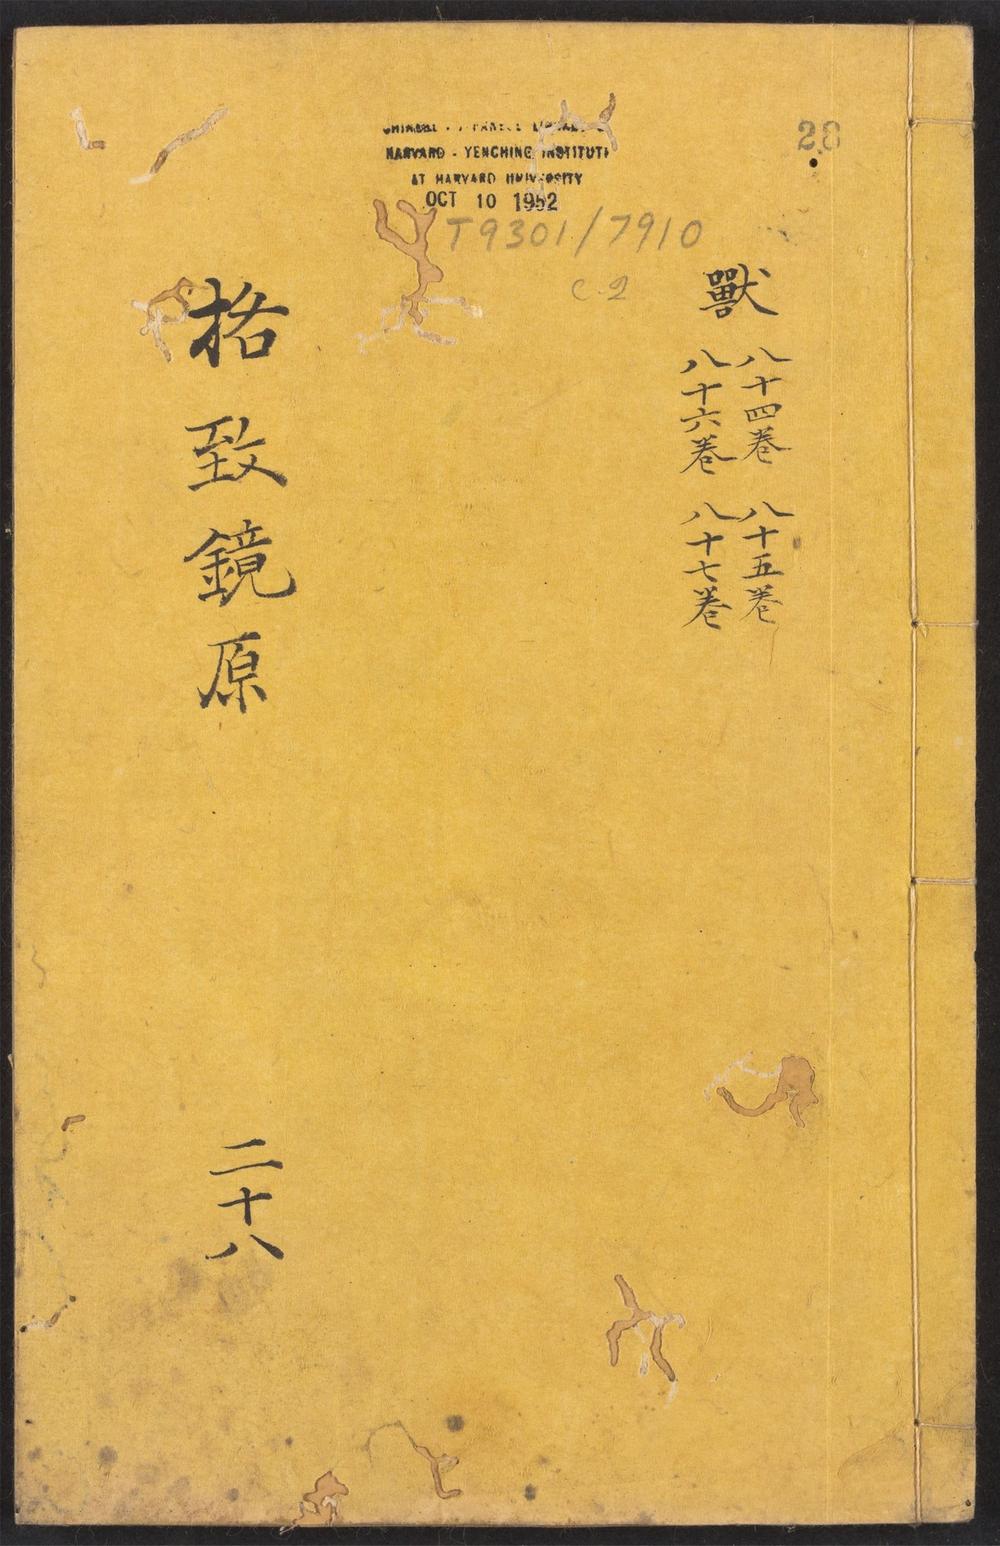 HARVARD - YENCHING INSTITUTE
AT HARVARD UNIVERSITY
OCT 10 1952
28
T9301/7910
C.2
獸
八十四卷 八十五卷
八十六卷 八十七卷
格致鏡原
二十八